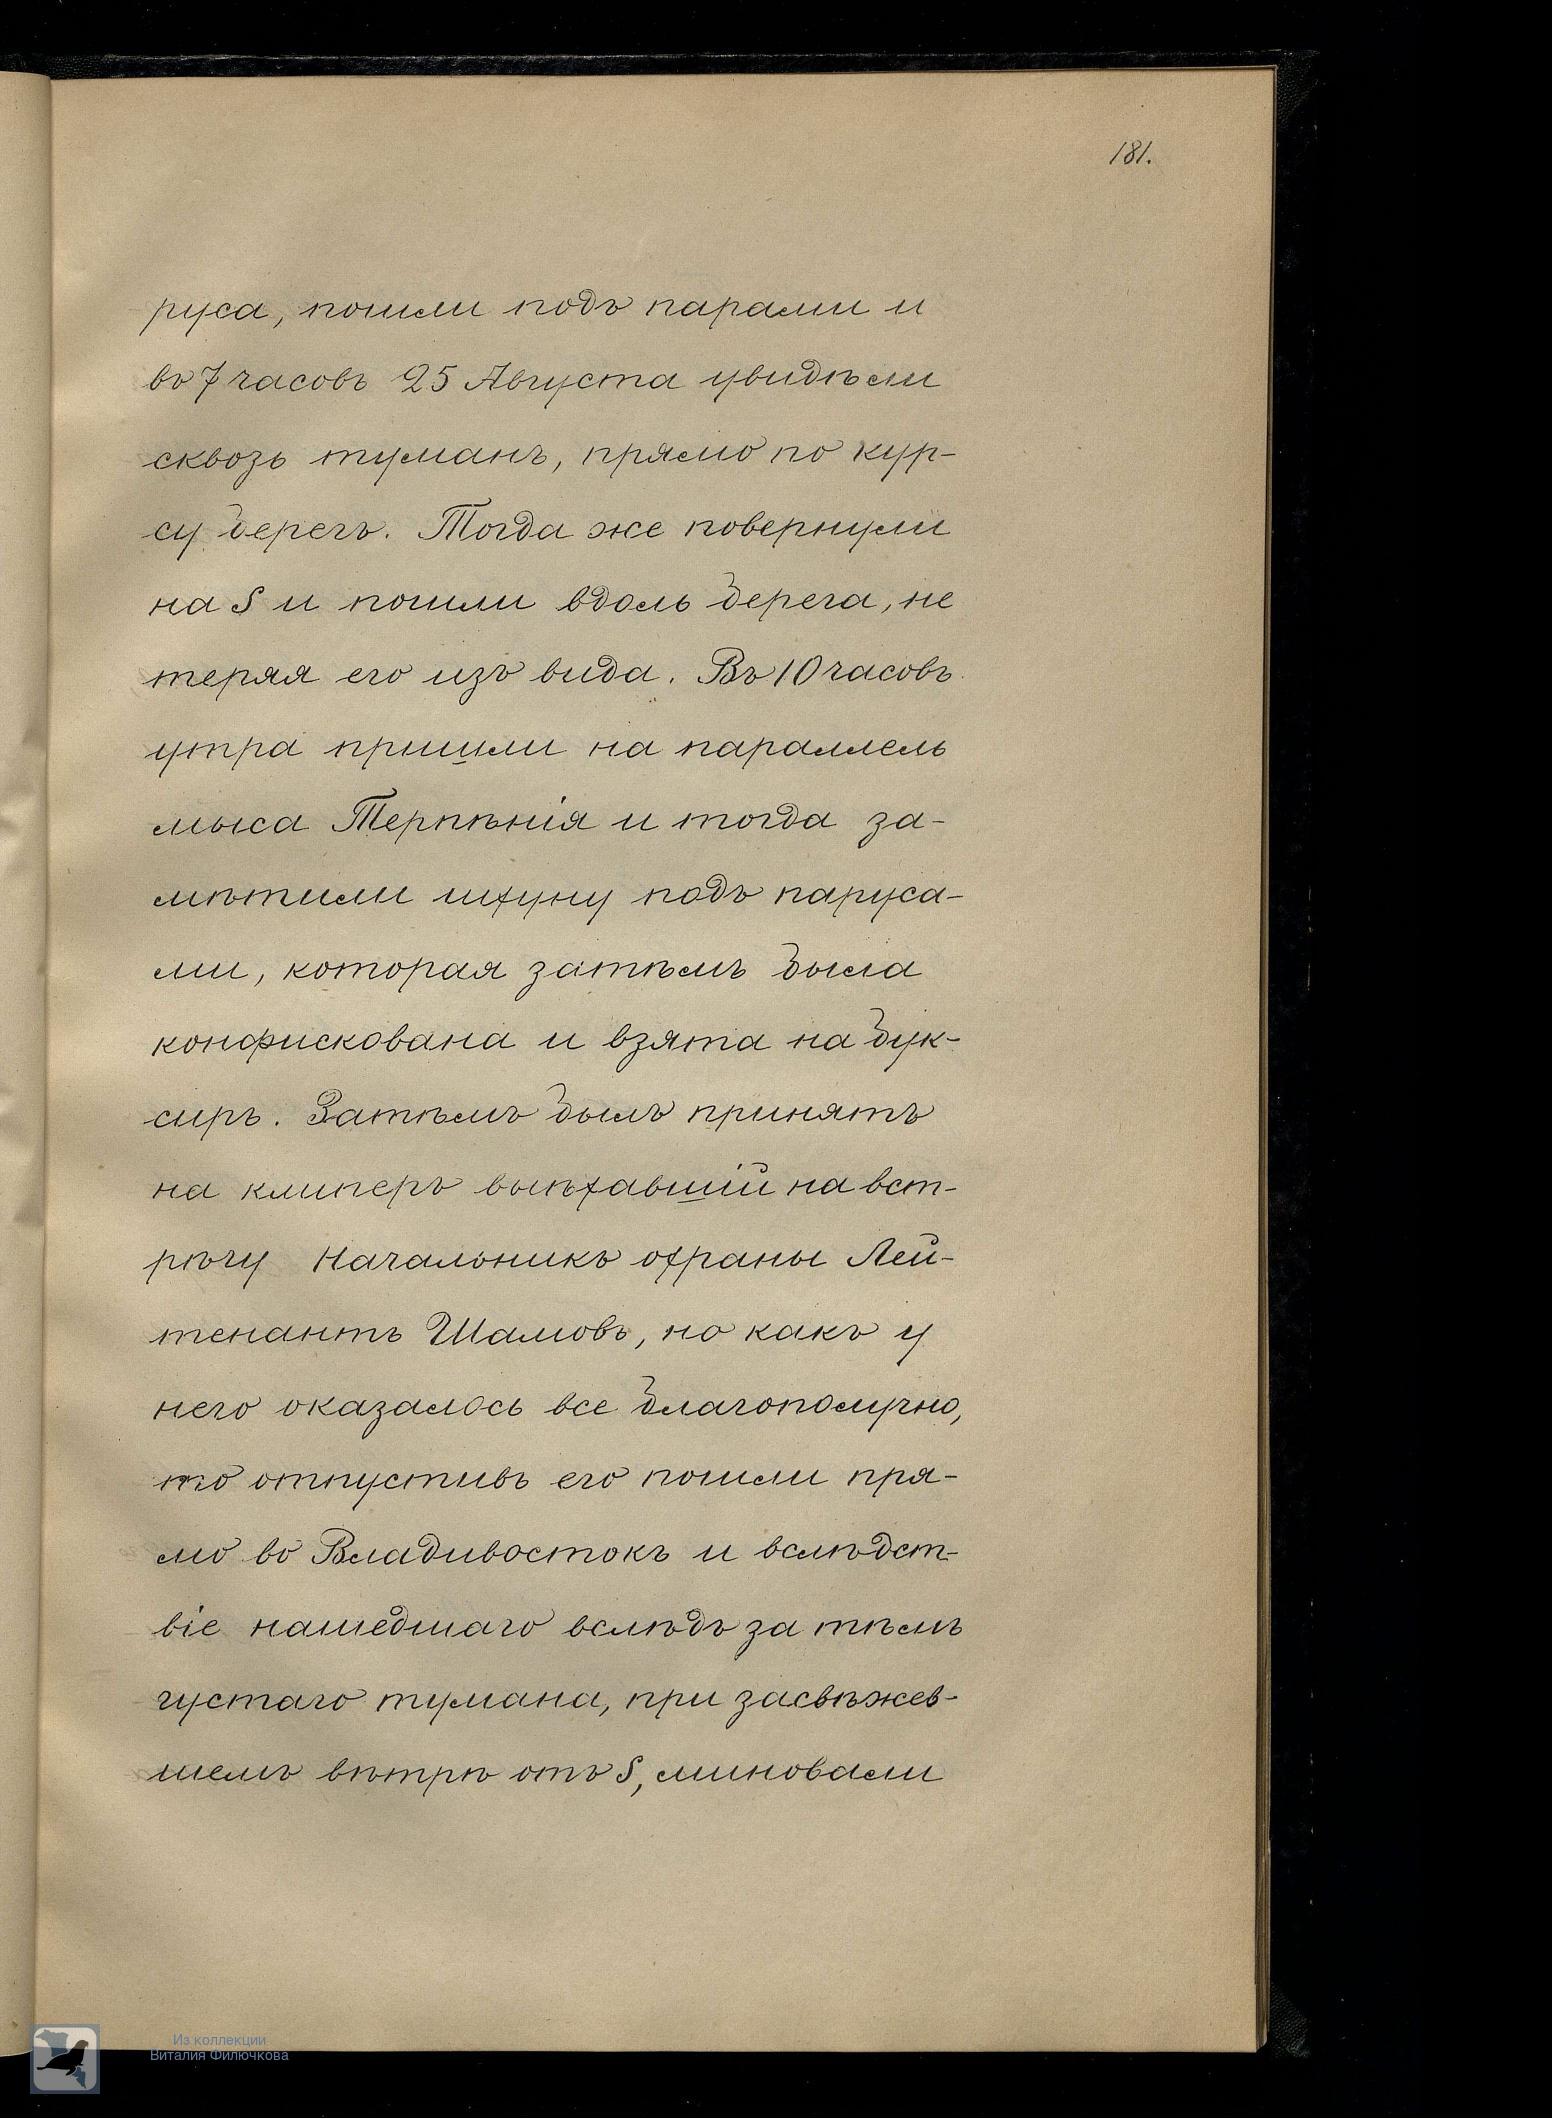 181.
руса, пошли подъ парами и
во 7 часовъ 25 Августа увидѣли
сквозь туманъ, прямо по кур-
су берегъ. Тогда же повернули
на S и пошли вдоль берега, не
теряя его изъ вида. Въ 10 часовъ
утра пришли на параллель
мыса Терпѣнія и тогда за-
мѣтили шхуну подъ паруса-
ми, которая затѣмъ была
конфискована и взята на бук-
сиръ. Затѣмъ былъ принятъ
на клиперъ выѣхавшій на вст-
рѣчу Начальникъ охраны Лей-
тенантъ Шамовъ, но какъ у
него оказалось все благополучно,
то отпустивъ его пошли пря-
мо во Владивостокъ и вслѣдст-
віе нашедшаго вслѣдъ за тѣмъ
густаго тумана, при засвѣжев-
шемъ вѣтрѣ отъ S, миновали
Из коллекции
Виталия Филючкова